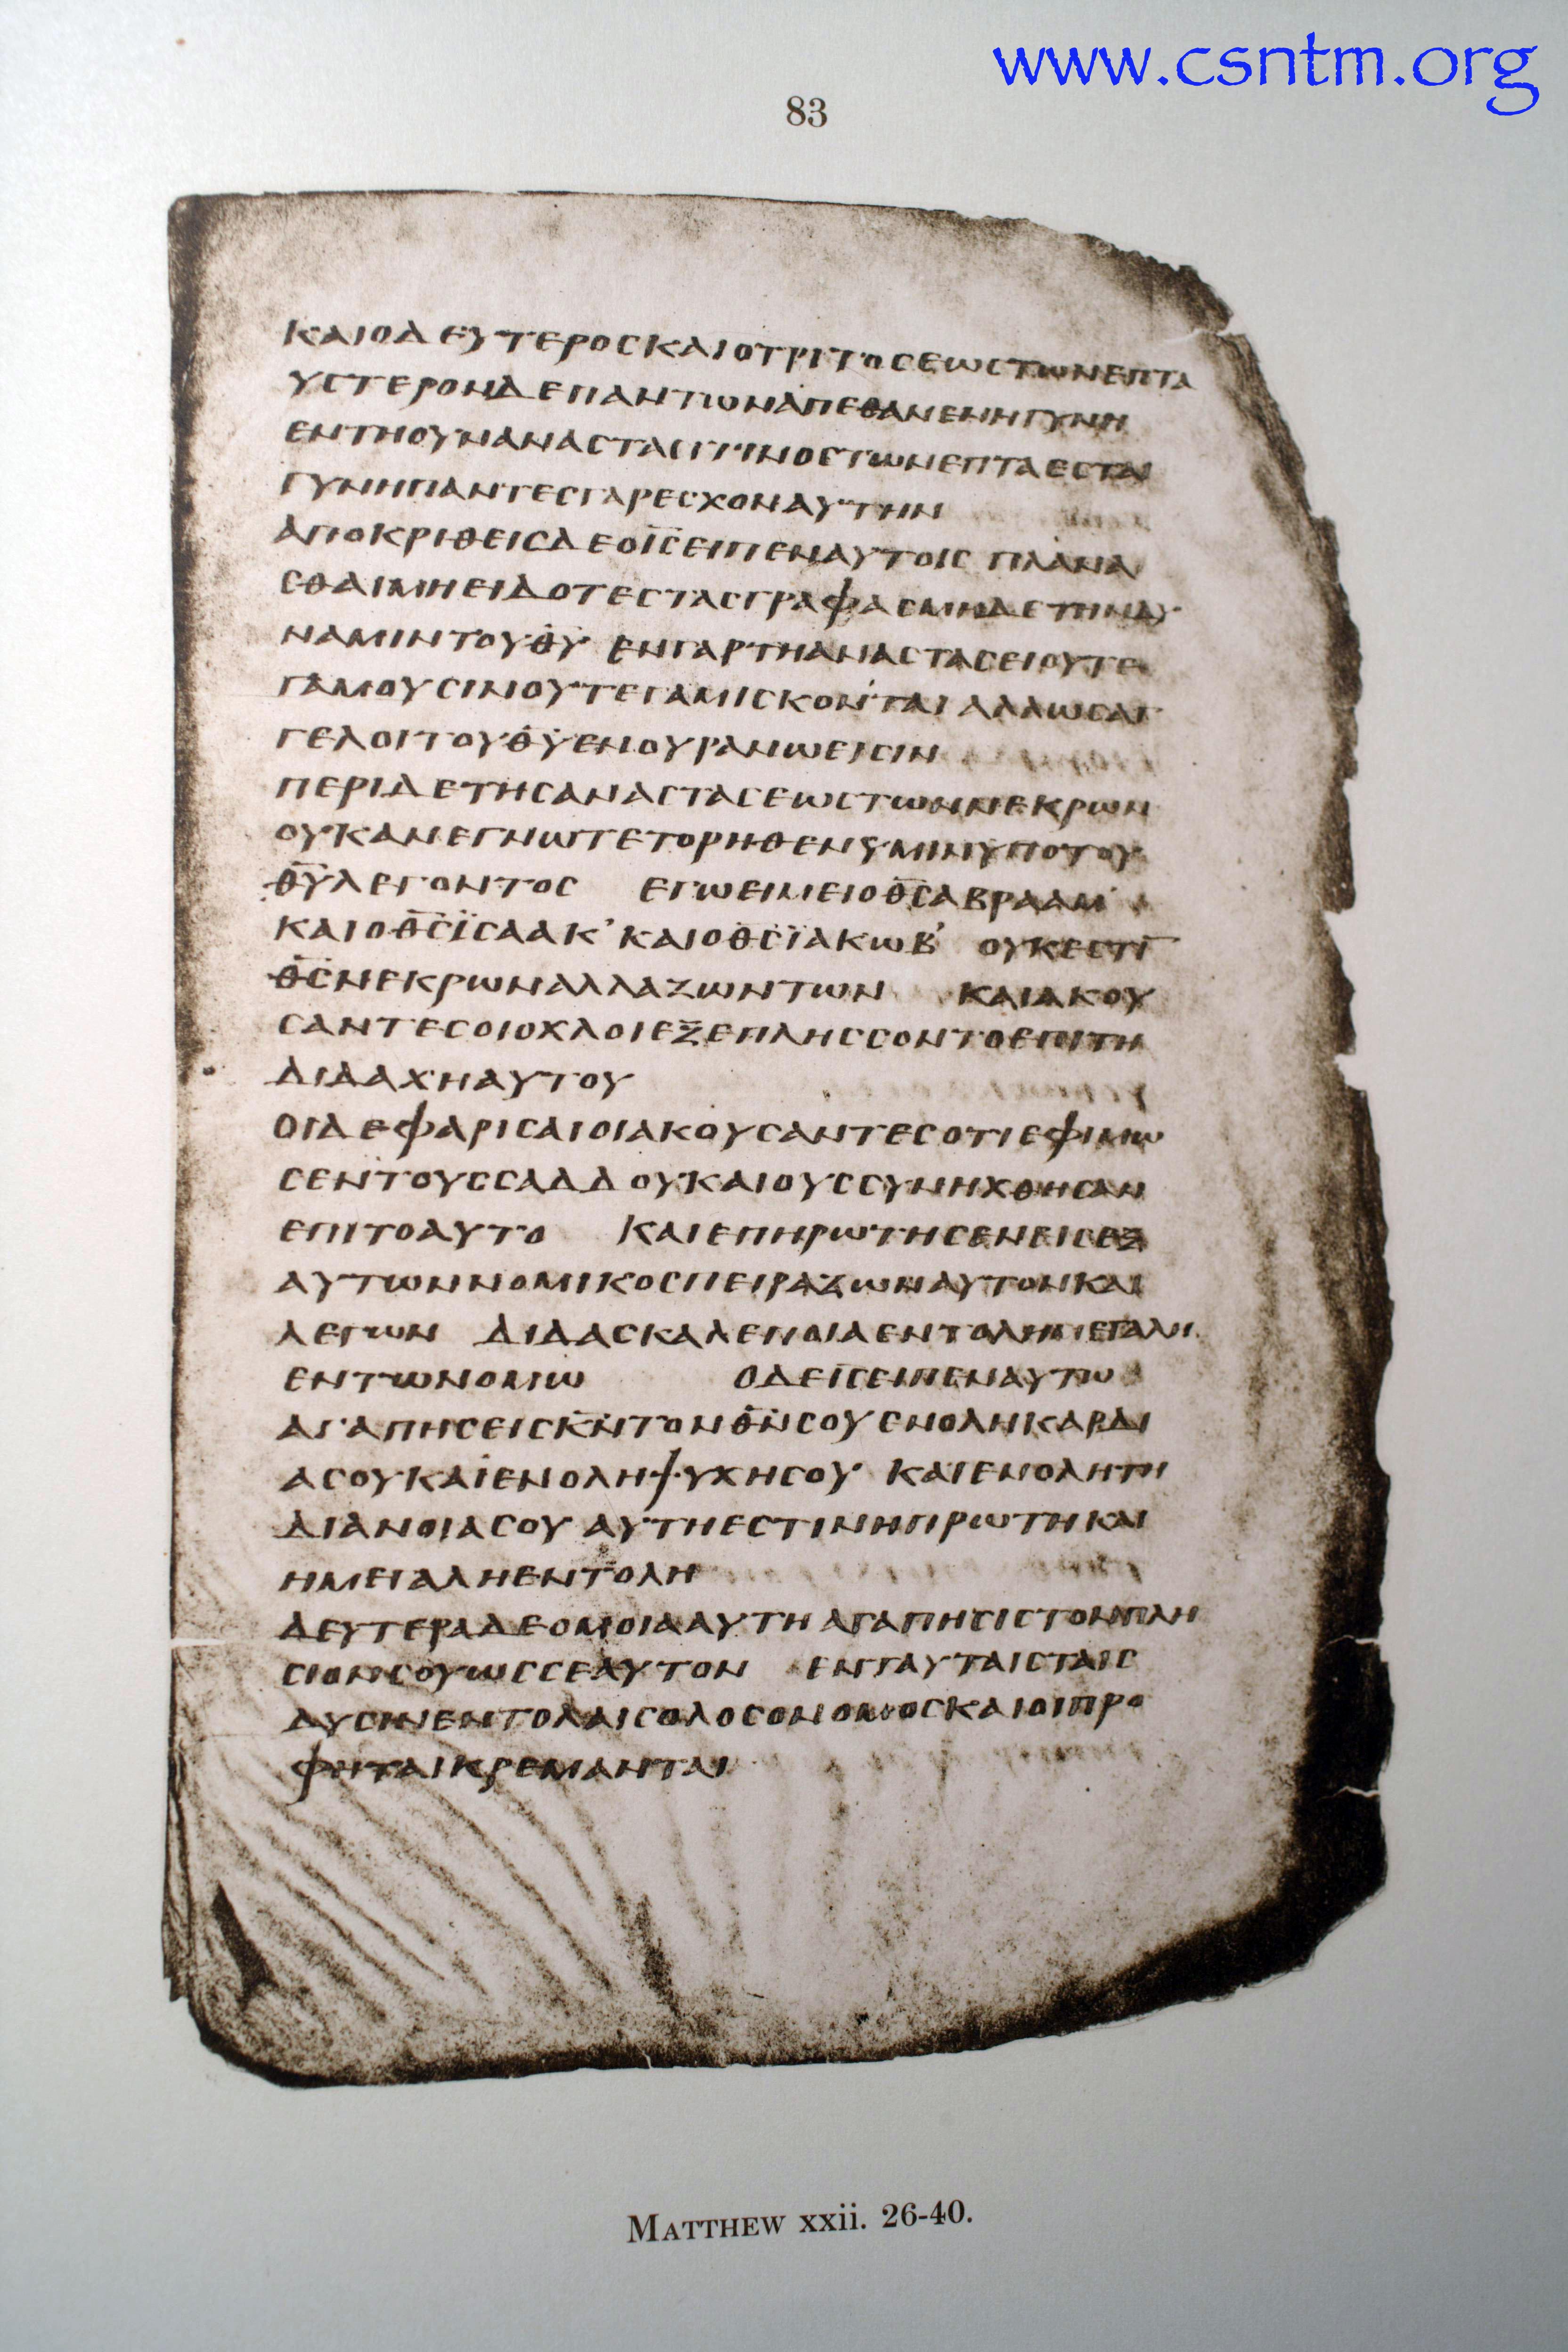 www.csntm.org
83
ΚΑΙΟΔΕΥΤΕΡΟCΚΑΙΟΤΡΙΤΟCΕωCΤωΝΕΠΤΑ
ΥCΤΕΡΟΝΔΕΠΑΝΤωΝΑΠΕΘΑΝΕΝΗΓΥΝΗ
ΕΝΤΗΟΥΝΑΝΑCΤΑCΙΤΙΝΟCΤωΝΕΠΤΑΕCΤΑΙ
ΓΥΝΗΠΑΝΤΕCΓΑΡΕCΧΟΝΑΥΤΗΝ
ΑΠΟΚΡΙΘΕΙCΔΕΟΙ̅C̅ΕΙΠΕΝΑΥΤΟΙC ΠΛΑΝΑ
CΘΑΙΜΗΕΙΔΟΤΕCΤΑCΓΡΑΦΑCΜΗΔΕΤΗΝΔΥ
ΝΑΜΙΝΤΟΥΘ̅Υ̅ ΕΝΓΑΡΤΗΑΝΑCΤΑCΕΙΟΥΤΕ
ΓΑΜΟΥCΙΝΟΥΤΕΓΑΜΙCΚΟΝΤΑΙ ΑΛΛωCΑΓ
ΓΕΛΟΙΤΟΥΘ̅Υ̅ΕΝΟΥΡΑΝωΕΙCΙΝ
ΠΕΡΙΔΕΤΗCΑΝΑCΤΑCΕωCΤωΝΝΕΚΡωΝ
ΟΥΚΑΝΕΓΝωΤΕΤΟΡΗΘΕΝΥΜΙΝΥΠΟΤΟΥ
Θ̅Υ̅ΛΕΓΟΝΤΟC ΕΓωΕΙΜΕΙΟΘ̅C̅ΑΒΡΑΑΜ
ΚΑΙΟΘ̅C̅ΪCΑΑΚ’ΚΑΙΟΘ̅C̅ΪΑΚωΒ’ ΟΥΚΕCΤΙ̅
Θ̅C̅ΝΕΚΡωΝΑΛΛΑΖωΝΤωΝ ΚΑΙΑΚΟΥ
CΑΝΤΕCΟΙΟΧΛΟΙΕΞΕΠΛΗCCΟΝΤΟΕΠΙΤΗ
ΔΙΔΑΧΗΑΥΤΟΥ
ΟΙΔΕΦΑΡΙCΑΙΟΙΑΚΟΥCΑΝΤΕCΟΤΙΕΦΙΜω
CΕΝΤΟΥCCΑΔΔΟΥΚΑΙΟΥCCΥΝΗΧΘΗCΑΝ
ΕΠΙΤΟΑΥΤΟ ΚΑΙΕΠΗΡωΤΗCΕΝΕΙCΕΞ
ΑΥΤωΝΝΟΜΙΚΟCΠΕΙΡΑΖωΝΑΥΤΟΝΚΑΙ
ΛΕΓωΝ ΔΙΔΑCΚΑΛΕΠΟΙΑΕΝΤΟΛΗΜΕΓΑΛΗ
ΕΝΤωΝΟΜω ΟΔΕΙ̅C̅ΕΙΠΕΝΑΥΤω
ΑΓΑΠΗCΕΙCΚ̅Ν̅ΤΟΝΘ̅Ν̅CΟΥΕΝΟΛΗΚΑΡΔΙ
ΑCΟΥΚΑΙΕΝΟΛΗΨΥΧΗCΟΥ ΚΑΙΕΝΟΛΗΤΗ
ΔΙΑΝΟΙΑCΟΥ ΑΥΤΗΕCΤΙΝΗΠΡωΤΗΚΑΙ
ΗΜΕΓΑΛΗΕΝΤΟΛΗ
ΔΕΥΤΕΡΑΔΕΟΜΟΙΑΑΥΤΗ ΑΓΑΠΗCΙCΤΟΝΠΛΗ
CΙΟΝCΟΥωCCΕΑΥΤΟΝ ΕΝΤΑΥΤΑΙCΤΑΙC
ΔΥCΙΝΕΝΤΟΛΑΙCΟΛΟCΟΝΟΜΟCΚΑΙΟΙΠΡΟ
ΦΗΤΑΙΚΡΕΜΑΝΤΑΙ
MATTHEW xxii. 26-40.